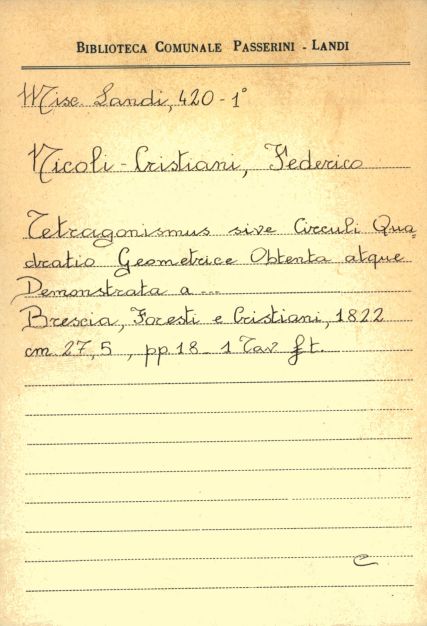 BIBLIOTECA COMUNALE PASSERINI - LANDI
Misc. Landi, 420 - 1°
Nicoli - Cristiani, Federico
Tetragonismus sive Circuli Qua=
dratio Geometrice Obtenta atque
Demonstrata a ...
Brescia, Foresti e Cristiani, 1822
cm 27,5 , pp 18 - 1 Tav ft.
C